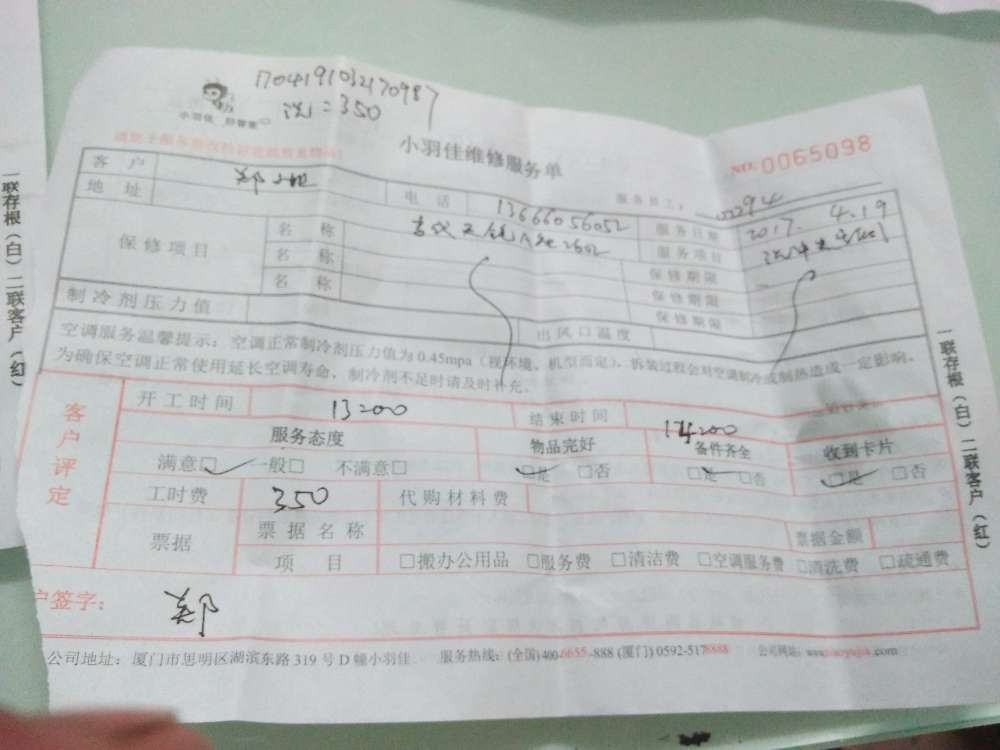 170419103270987
洗:=350
小羽佳
小羽佳维修服务单
NO: 0065098
客 户
电 话 13666056052
服务员工:
地 址
服务日期 2017. 4.19
保修项目
名 称
服务项目
名 称
保修期限
名 称
保修期限
保修期限
制冷剂压力值
出风口温度
空调服务温馨提示:空调正常制冷剂压力值为0.45mpa(视环境、机型而定),拆装过程会对空调制冷或制热造成一定影响。
为确保空调正常使用延长空调寿命,制冷剂不足时请及时补充。
客户评定
开工时间 13:00
结束时间
服务态度
物品完好
备件齐全
收到卡片
满意□ 一般□ 不满意□
□是 □否
□是 □否
□是 □否
工时费 350
代购材料费
票据
票据名称
票据金额
项 目
□搬办公用品 □服务费 □清洁费 □空调服务费 □清洗费 □疏通费
户签字: 郑
公司地址:厦门市思明区湖滨东路319号D幢小羽佳 服务热线:(全国)400-6655-888 (厦门) 0592-5178888 公司网站:
一联存根(白)二联客户(红)
一联存根(白)二联客户(红)